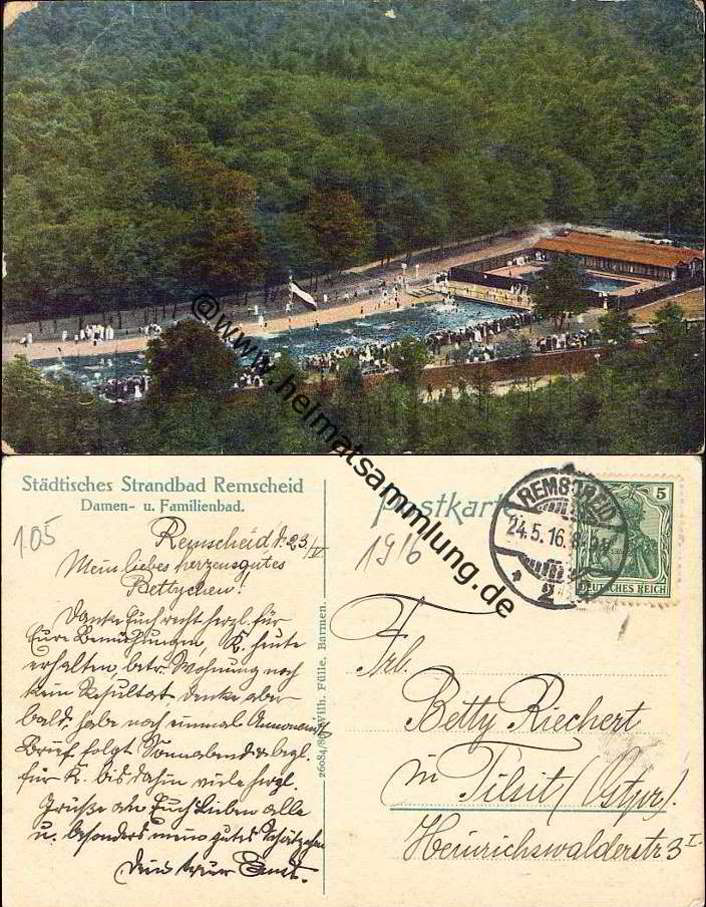 @www.heimatsammlung.de
Städtisches Strandbad Remscheid
Damen- u. Familienbad.
Postkarte
105
1916
REMSCHEID
24.5.16.8-9V
* 2
5
DEUTSCHES REICH
Remscheid d. 23/V
Mein liebes herzensgutes
Bettychen!
Danke Euch recht herzl. für
Eure Bemühungen, K. heute
erhalten, betr. Wohnung noch
kein Resultat, denke aber
bald. habe noch einmal
Brief folgt Sonnabend
für K. bis dahin viele herzl.
Grüße an Euch Lieben alle
u. besonders mein gutes
Dein treuer Ernst.
26084/8 Wilh. Fülle, Barmen.
Frl.
Betty Riechert
in Tilsit (Ostpr).
Heinrichswalderstr 3 I